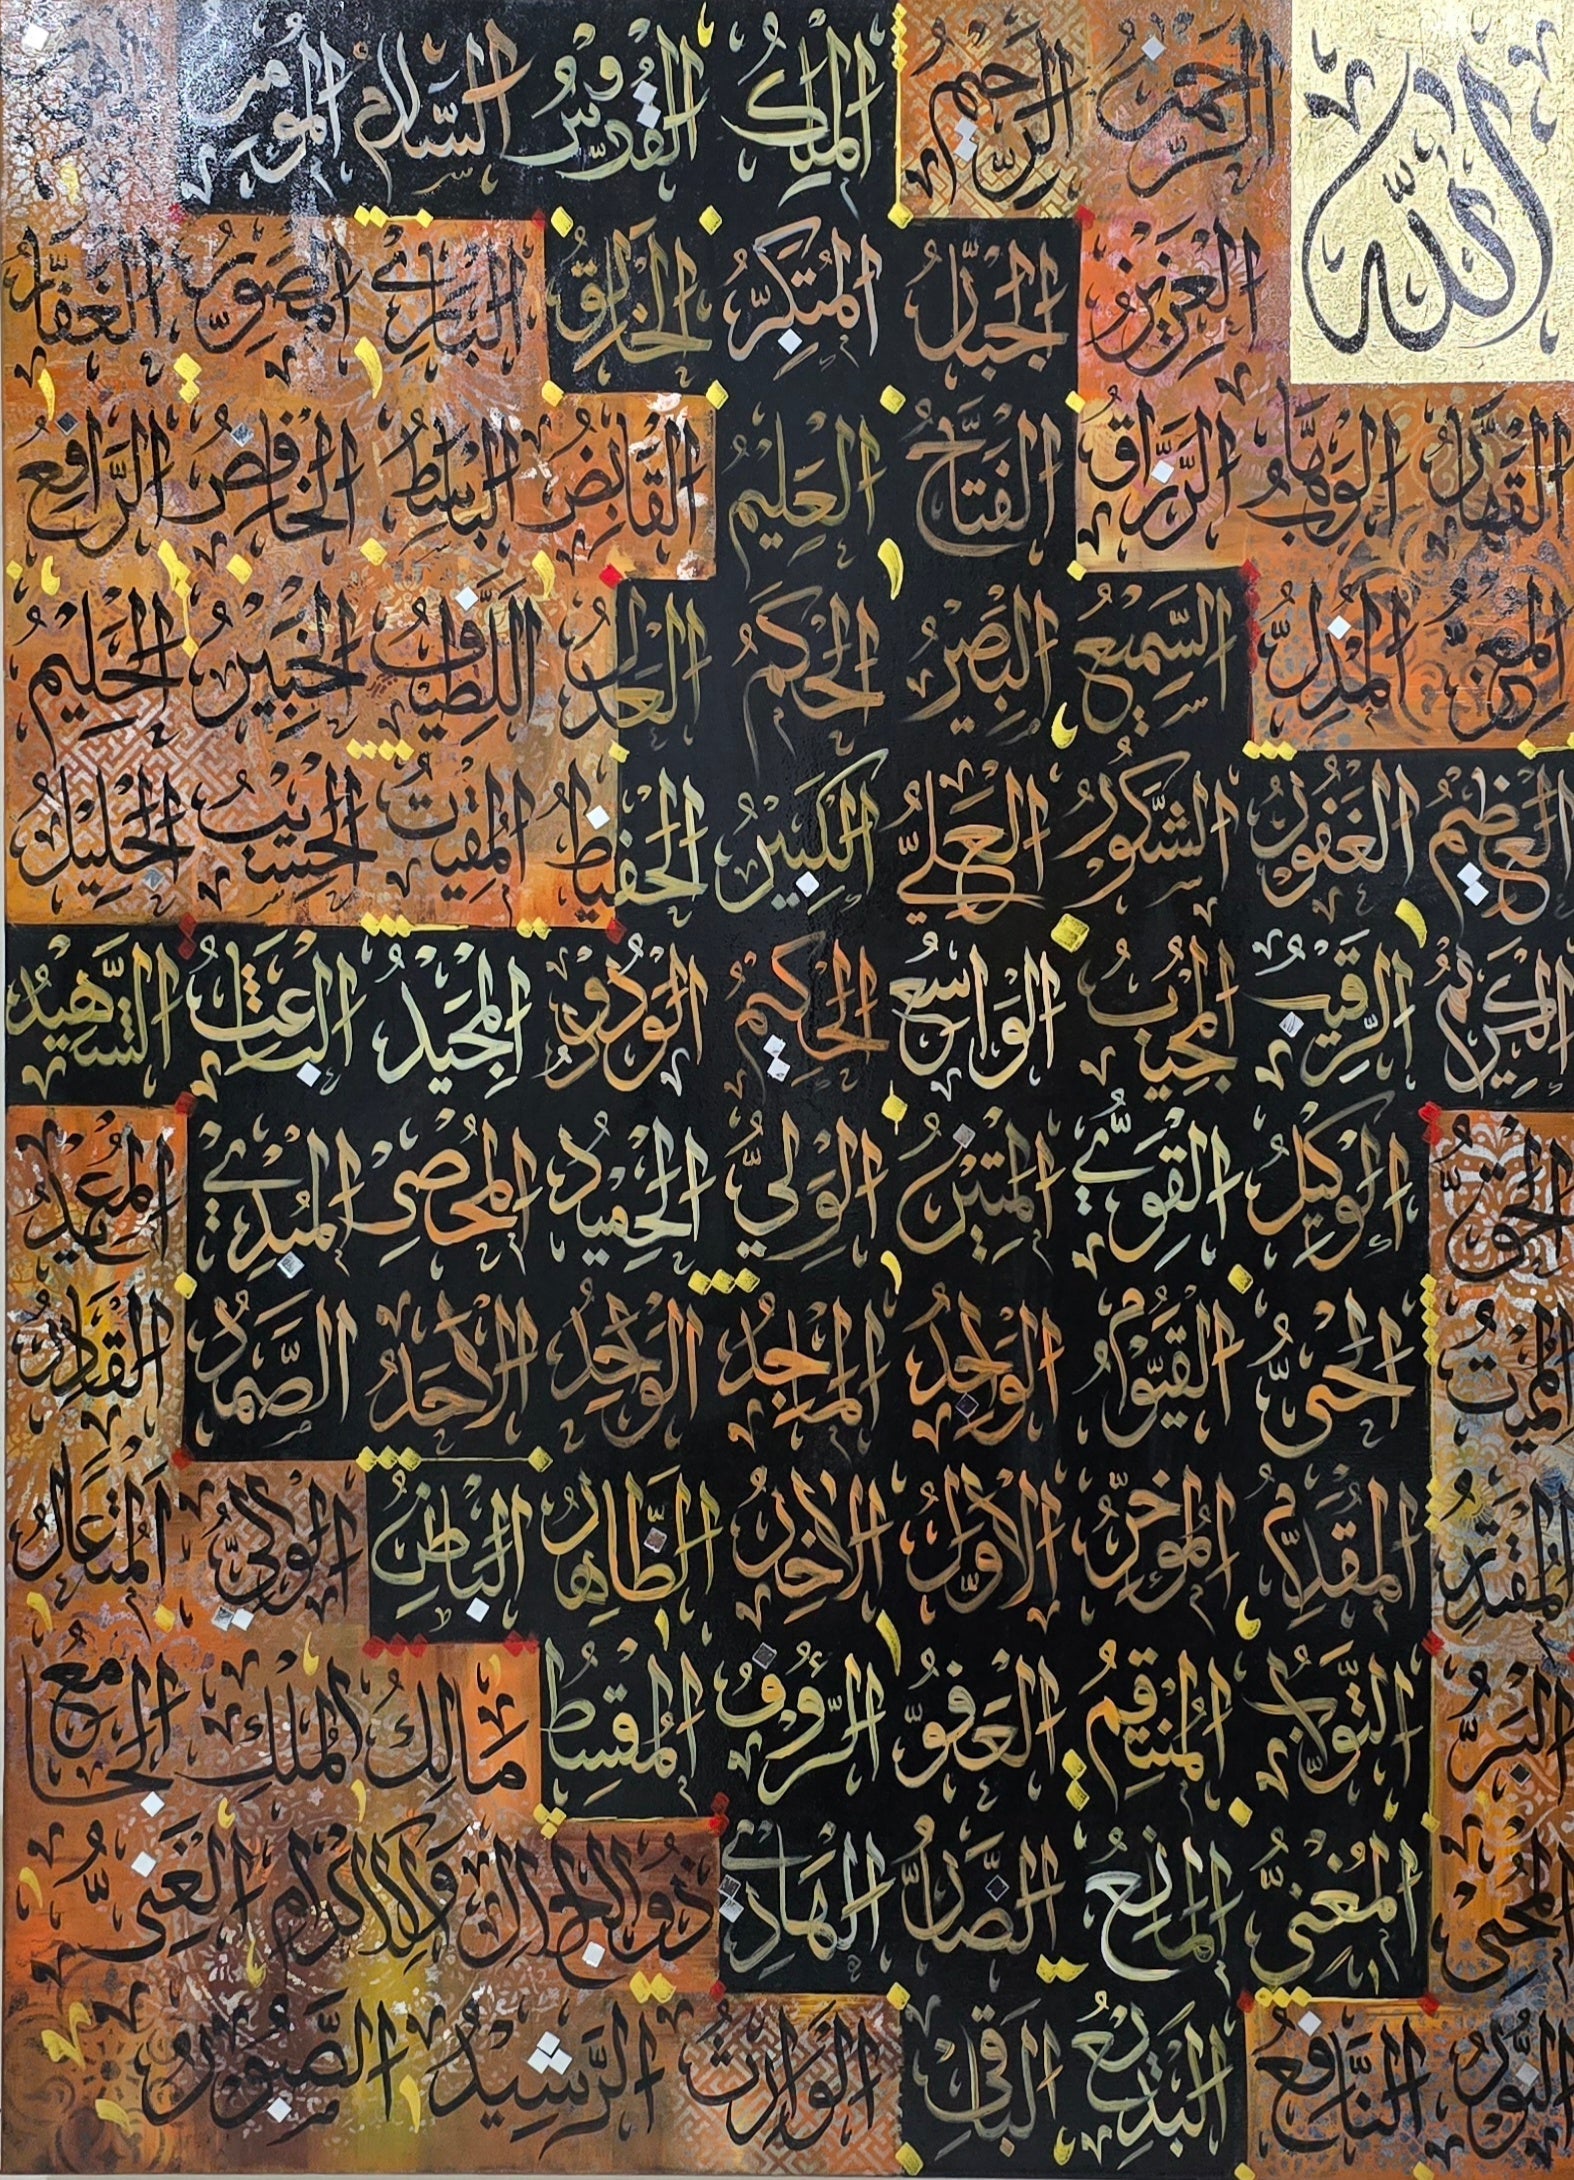 الله الرحمن الرحيم الملك القدوس السلام المؤمن
العزيز الجبار المتكبر الخالق البارئ المصور الغفار
القهار الوهاب الرزاق الفتاح العليم القابض الباسط الخافض الرافع
المعز المذل السميع البصير الحكم العدل اللطيف الخبير الحليم
العظيم الغفور الشكور العلي الكبير الحفيظ المقيت الحسيب الجليل
الكريم الرقيب المجيب الواسع الحكيم الودود المجيد الباعث الشهيد
الحق الوكيل القوي المتين الولي الحميد المحصي المبدئ المعيد
المميت الحي القيوم الواجد الماجد الواحد الأحد الصمد القادر
المقتدر المقدم المؤخر الأول الآخر الظاهر الباطن الوالي المتعال
البر التواب المنتقم العفو الرؤوف المقسط مالك الملك الجامع
المحيي المغني المانع الضار الهادي ذو الجلال والإكرام الغني
النور النافع البديع الباقي الوارث الرشيد الصبور